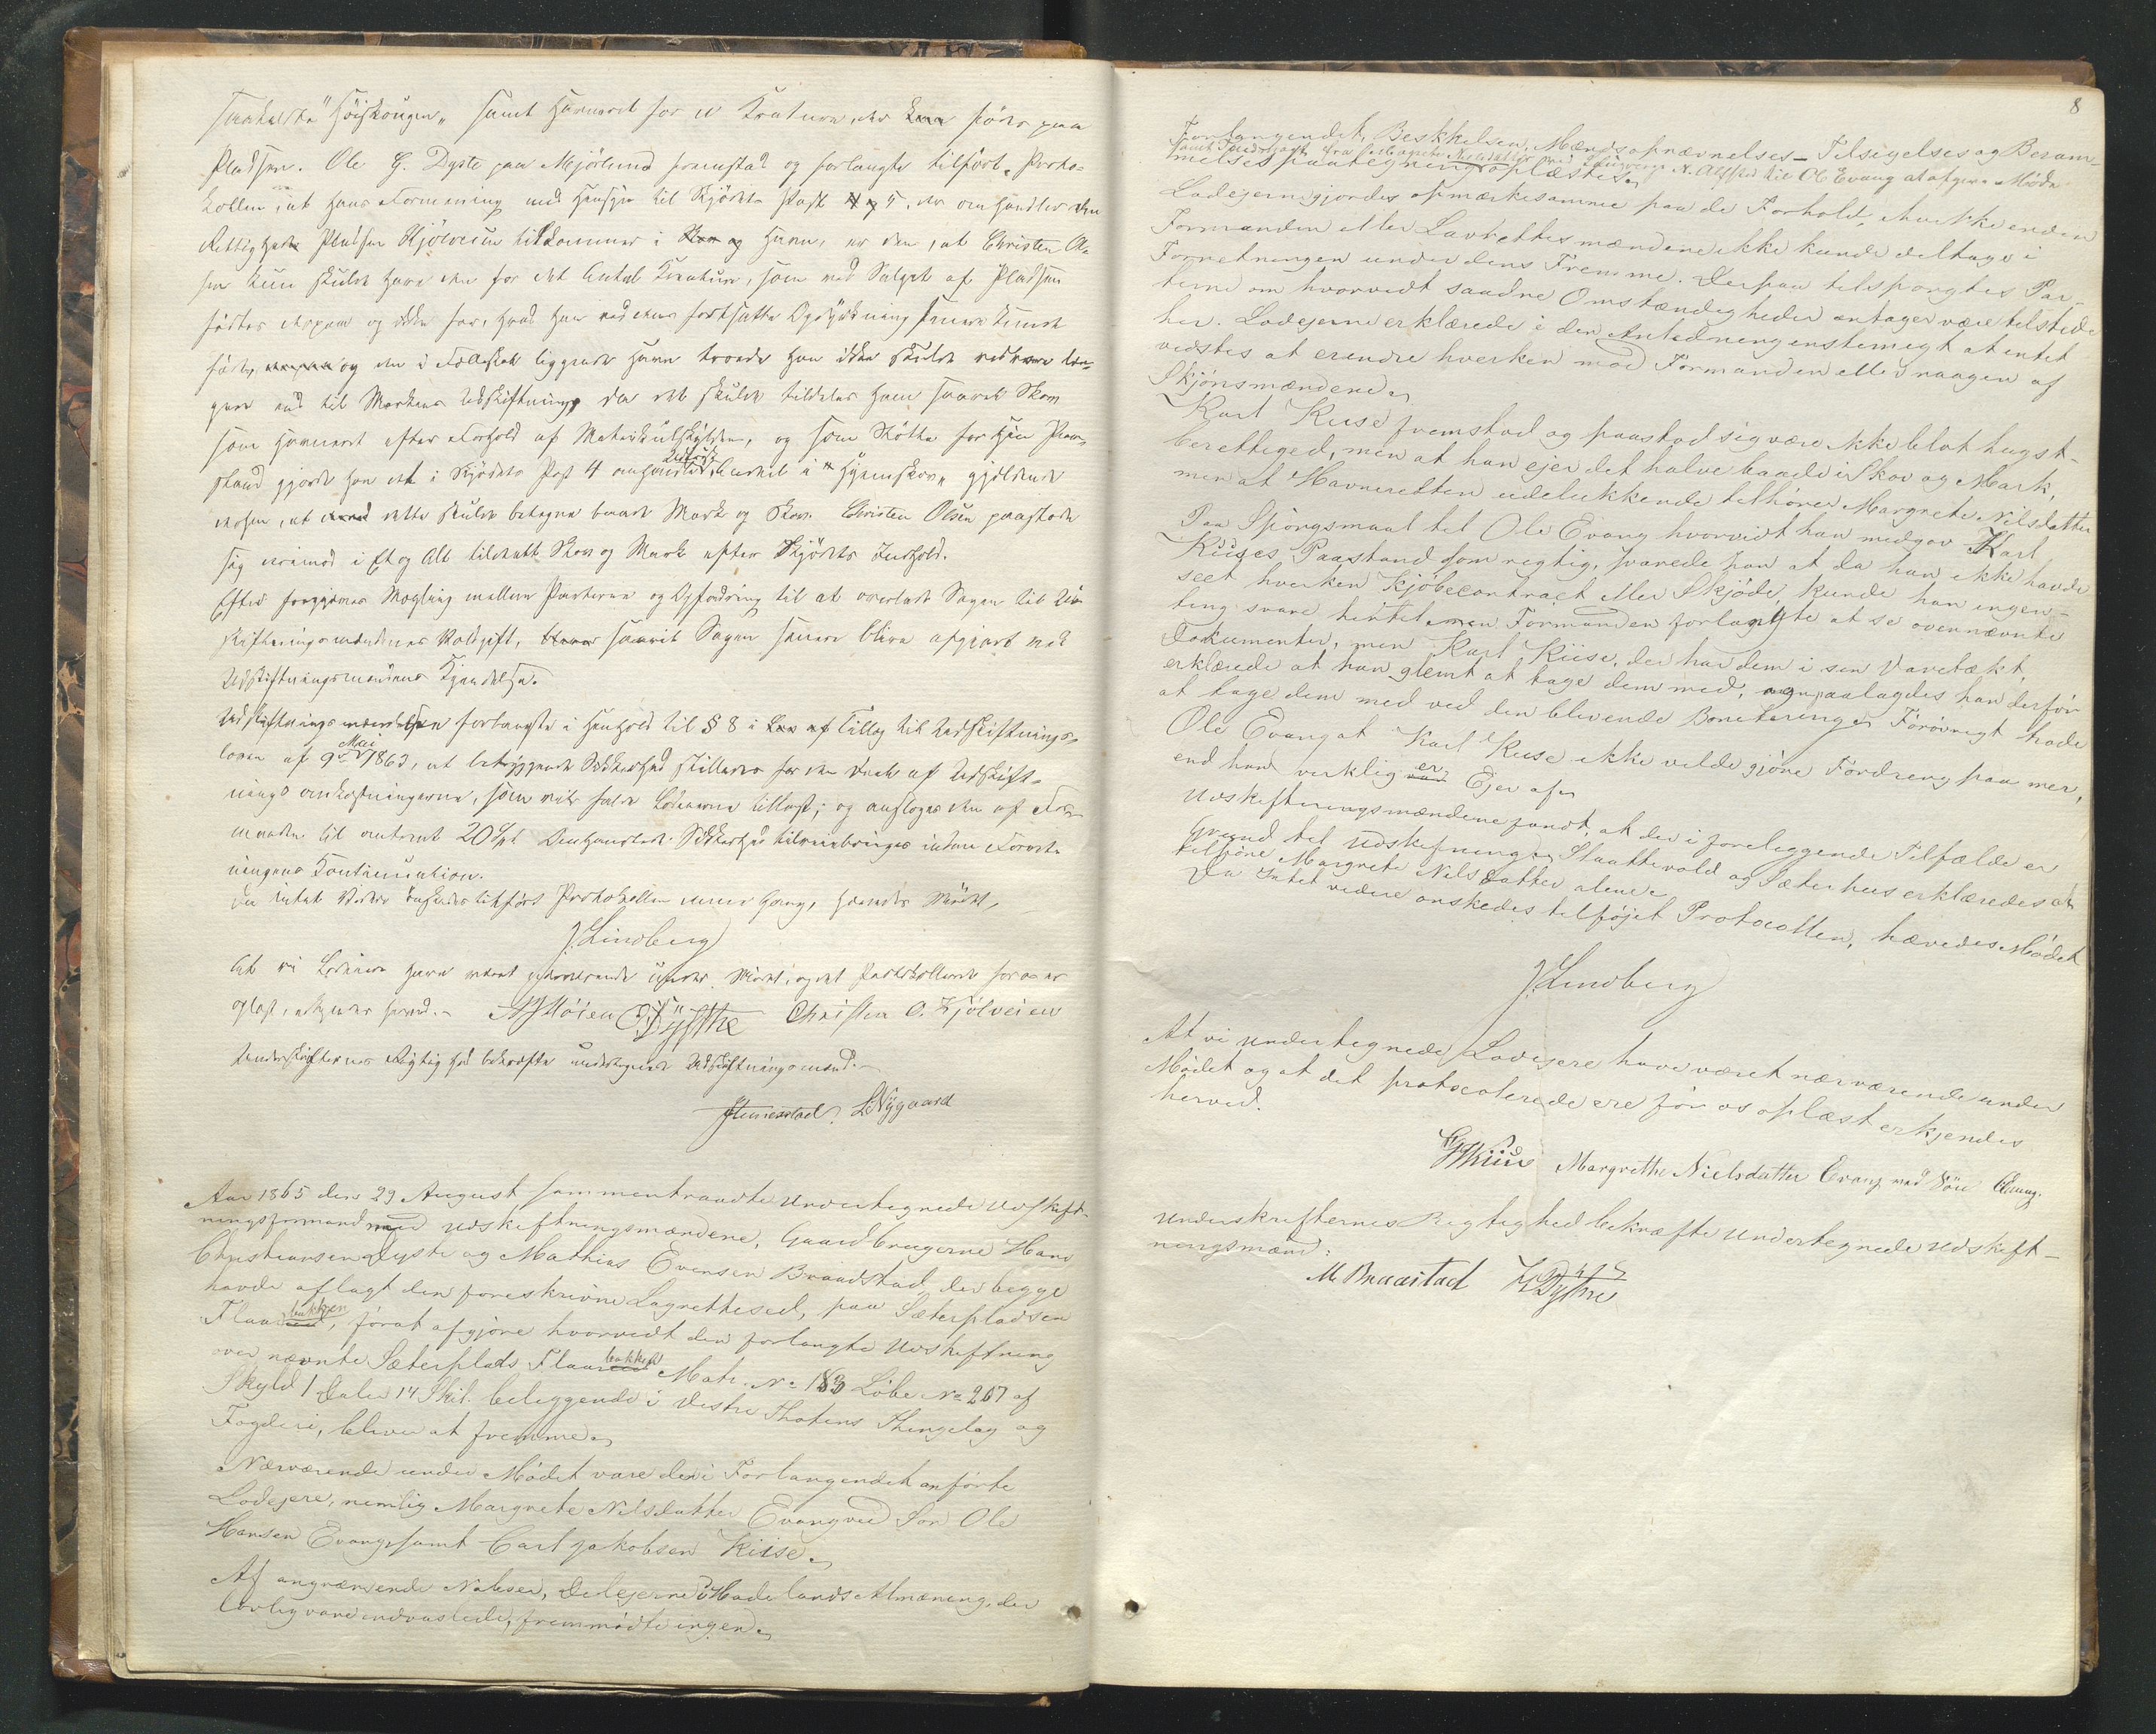 "Høiskougen" samt Havneret for et Kreatur, der kan födes paa
Pladsen. Ole G. Dyste paa Mjörlund fremstod og forlangte tilfört Proto-
kollen, at hans Formening med Hensyn til Skjödets Post 5, der omhandler den
Rettighed Pladsen Kjölveien tilkommer i Havn, er den, at Christen Ol-
sen kun skulde have den for det Antal Kreature, som ved Salget af Pladsen
födtes derpaa og ikke for, hvad han ved dens fortsatte Opdyrkning senere kunde
föde, og den i Fælleskab liggende Havn troede han ikke skulde vedvare læn-
gere end til Markens Udskiftning, da der skulde tildeles ham saavel Skov
som Havneret efter Forhold af Matrikulskylden, og som Stötte for sin Paa-
stand gjorde han det i Skjödets Post 4 anförte Udtryk gjeldende
derhen, at dette skulde betegne baade Mark og Skov. Christen Olsen paastod
sig derimod i Et og Alt tildeelt Skov og Mark efter Skjödets Indhold.
Efter foregaaende Mægling mellem Parterne og Opfordring til at overlade Sagen til Ud-
skiftningsmændenes Voldgift, saavit Sagen senere blive afgjort ved
Udskiftningsmændenes Kjendelse.
Udskiftningsmændene forlangte i Henhold til § 8 i Tillæg til Udskiftnings-
loven af 9de Mai 1863, at betryggende Sikkerhed stilledes for den Deel af Udskift-
ningsomkostningerne, som vilde falde Lodeierne tillast; og ansloges den af For-
manden til omtrent 20 Spd. Denne Sikkerhed tilveiebringes inden Forret-
ningens Continuation.
Da intet Videre önskedes tilfört Protokollen denne Gang, hævedes Mödet,
J. Lindberg
At vi Lodeiere have været nærværende under Mödet, og det Protokollerede for os er
oplæst, erkjendes herved. Christen O. Kjölveien
Underskrifternes Rigtighed bekræfte undertegnede Udskiftningsmænd.
L. Nygaard
Aar 1865 den 29 August sammentraadte undertegnede Udskift-
ningsformand med Udskiftningsmændene, Gaardbrugerne Hans
Christiansen Dyste og Mathias Evensen Braastad, der begge
havde aflagt den foreskrivne Lagretteseed, paa Sæterpladsen
Flaabakken, forat afgjöre hvorvidt den forlangte Udskiftning
over nævnte Sæterplads Flaabakken Matr. No 183 Löbe No 267 af
Skyld 1 Daler 14 Skil. beliggende i Vestre Thotens Thinglag og
Fogderi, bliver at fremme.
Nærværende under Mödet vare de i Forlangendet anförte
Lodejere, nemlig Margrete Nilsdatter Evang ved Sön Ole
Hansen Evang, samt Carl Jakobsen Kiise.
Af angrændsende Naboer, Delejerne i Hadelands Almening, der
lovlig vare indvarslede, fremmödte ingen.
8
Forlangendet, Beskikkelsen, Mændsopnævnelses- Tilsigelses og Beram-
samt Fuldmagt fra Margrete Nilsdatter med Laugværge N. Alfstad til Ol. Evang at afgive Möde
melsespaategning oplæstes.
Lodejerne gjordes opmærksomme paa de Forhold, hvorunder
Formanden eller Lavrettesmændene ikke kunde deltage i
Forretningen under dens Fremme. Derpaa tilspörgtes Par-
terne om hvorvidt saadne Omstændigheder antages være tilstede
her. Lodejerne erklærede i den Anledning enstemigt at intet
vidstes at erindre hverken mod Formanden eller naagen af
Skjönsmændene.
Karl Kiise fremstod og paastod sig være ikke blot hugst-
berettiget, men at han ejer det halve baade i Skov og Mark,
men at Havneretten udelukkende tilhörer Margrete Nilsdatter
Paa Spörgsmaal til Ole Evang hvorvidt han medgav Karl
Kiises Paastand som rigtig, svarede han at da han ikke havde
seet hverken Kjöbecontract eller Skjöde, kunde han ingen-
ting svare hertil men Formanden forlangte at se ovennævnte
Dokumenter, men Karl Kiise, der har dem i sin Varetækt,
erklærede at han glemt at tage dem med, paalagdes han derfor
at tage dem med ved den blivende Bonitering. Forövrigt trode
Ole Evang at Karl Kiise ikke vilde gjöre Fordring paa mer,
end han verklig er Ejer af.
Udskiftningsmændene fandt, at der i foreliggende Tilfælde er
Grund til Udskiftning. Slaattevold og Sæterhus erklæredes at
tilhöre Margrete Nilsdatter alene.
Da Intet videre önskedes tilföjet Protocollen, hævedes Mödet
J. Lindberg
At vi undertegnede Lodejere have været nærværende under
Mödet og at det protocolerede ere for os oplæst erkjendes
herved.
Kiise Margrethe Nielsdatter Evang ved Sön
Underskrifternes Rigtighed bekræfte undertegnede Udskift-
ningsmænd:
M. Braastad H. Dyste